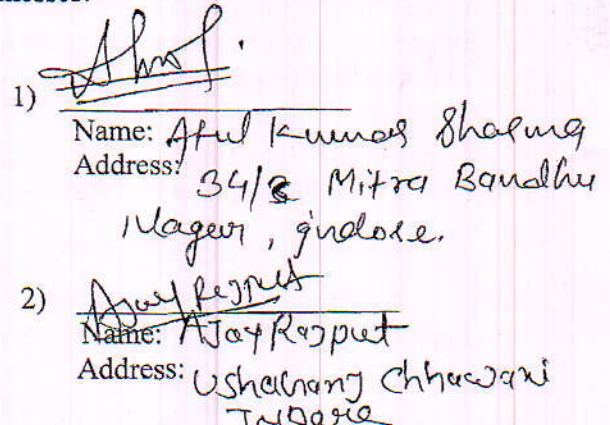 1)
Name: Atul Kumar Sharma
Address:
34/2 Mitra Bandhu
Nagar, Indore.
2) Ajay Rajput
Name: Ajay Rajput
Address: Ushaganj Chhawani
Indore